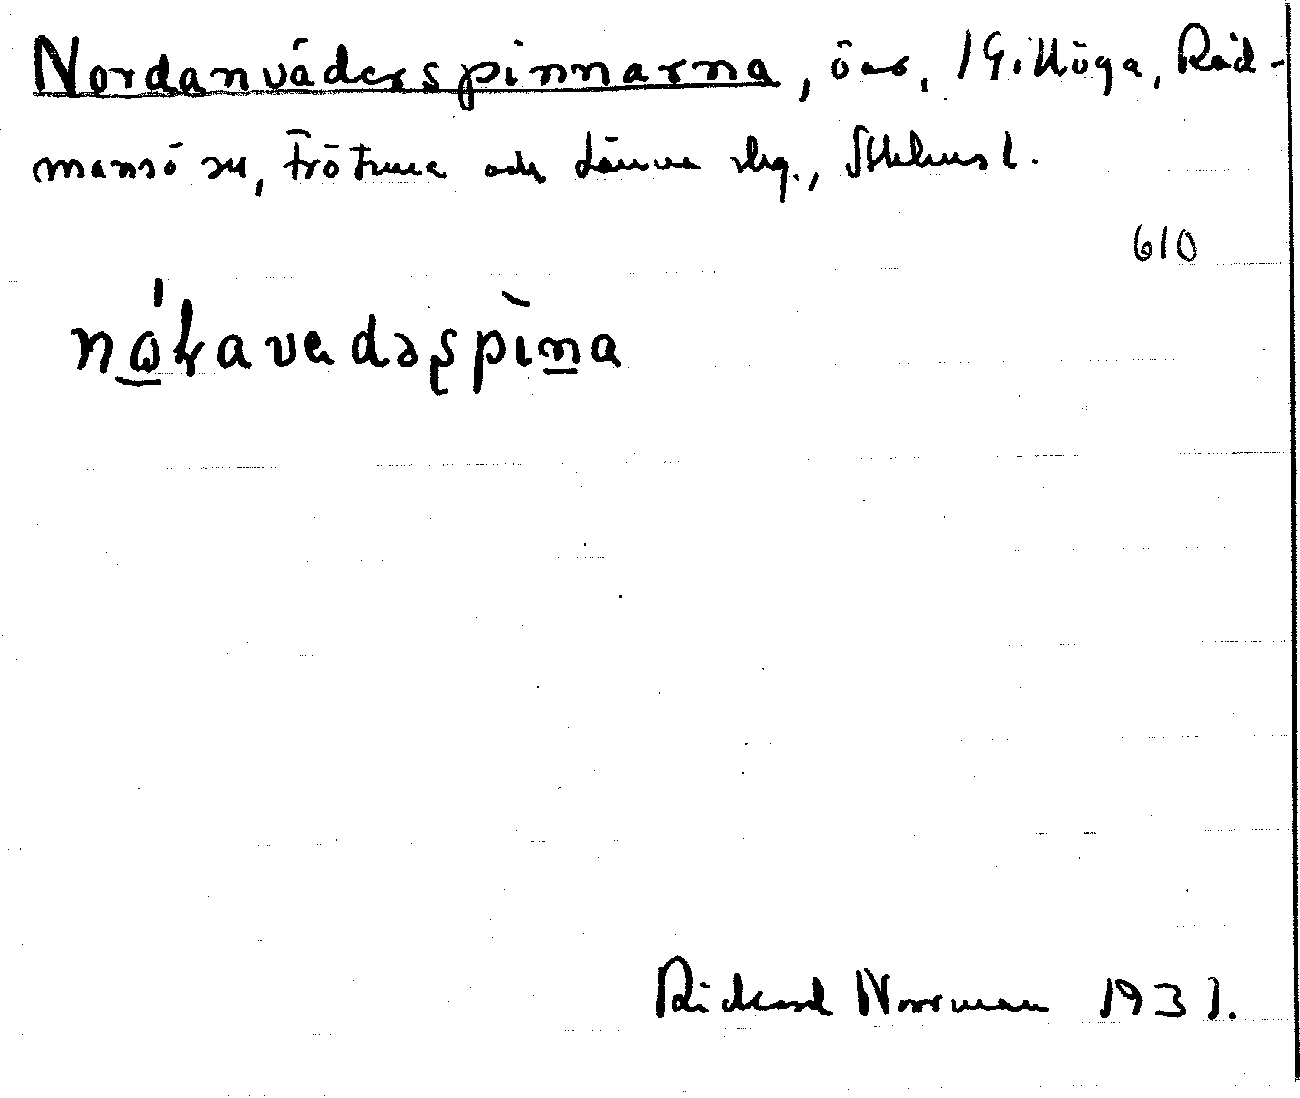 Nordanväderspinnarna, öar, Gillöga, Råd-
mansö sn, Frötuna och Länna skg., Sthlms l.
610
Rickard Norrman 1931.